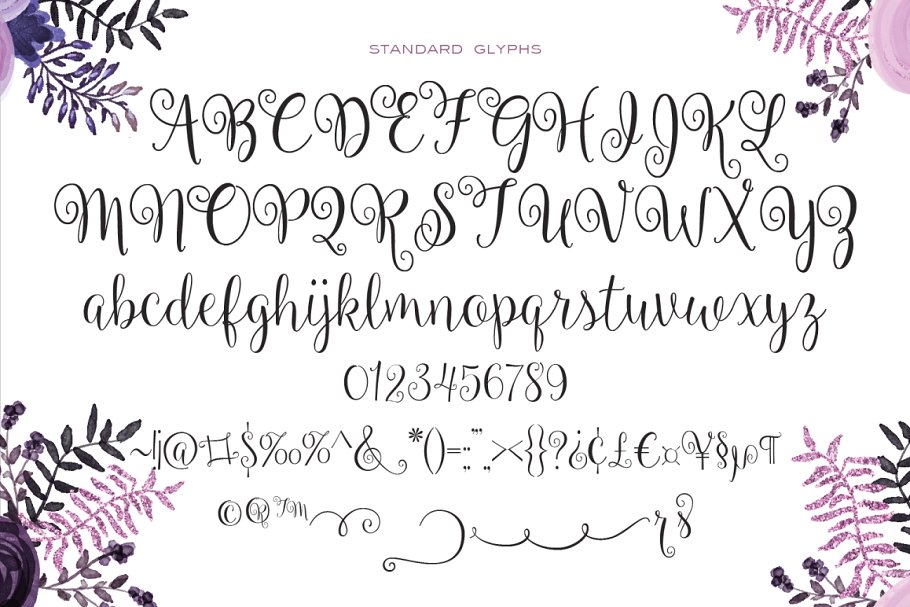 STANDARD GLYPHS
ABCDEFGHIJKL
MNOPQRSTUVWXYZ
abcdefghijklmnopqrstuvwxyz
0123456789
~!¡@#$%‰%^&*()=:;"'.,><{}?¿¢£€¤¥§µ¶
©®™
rs